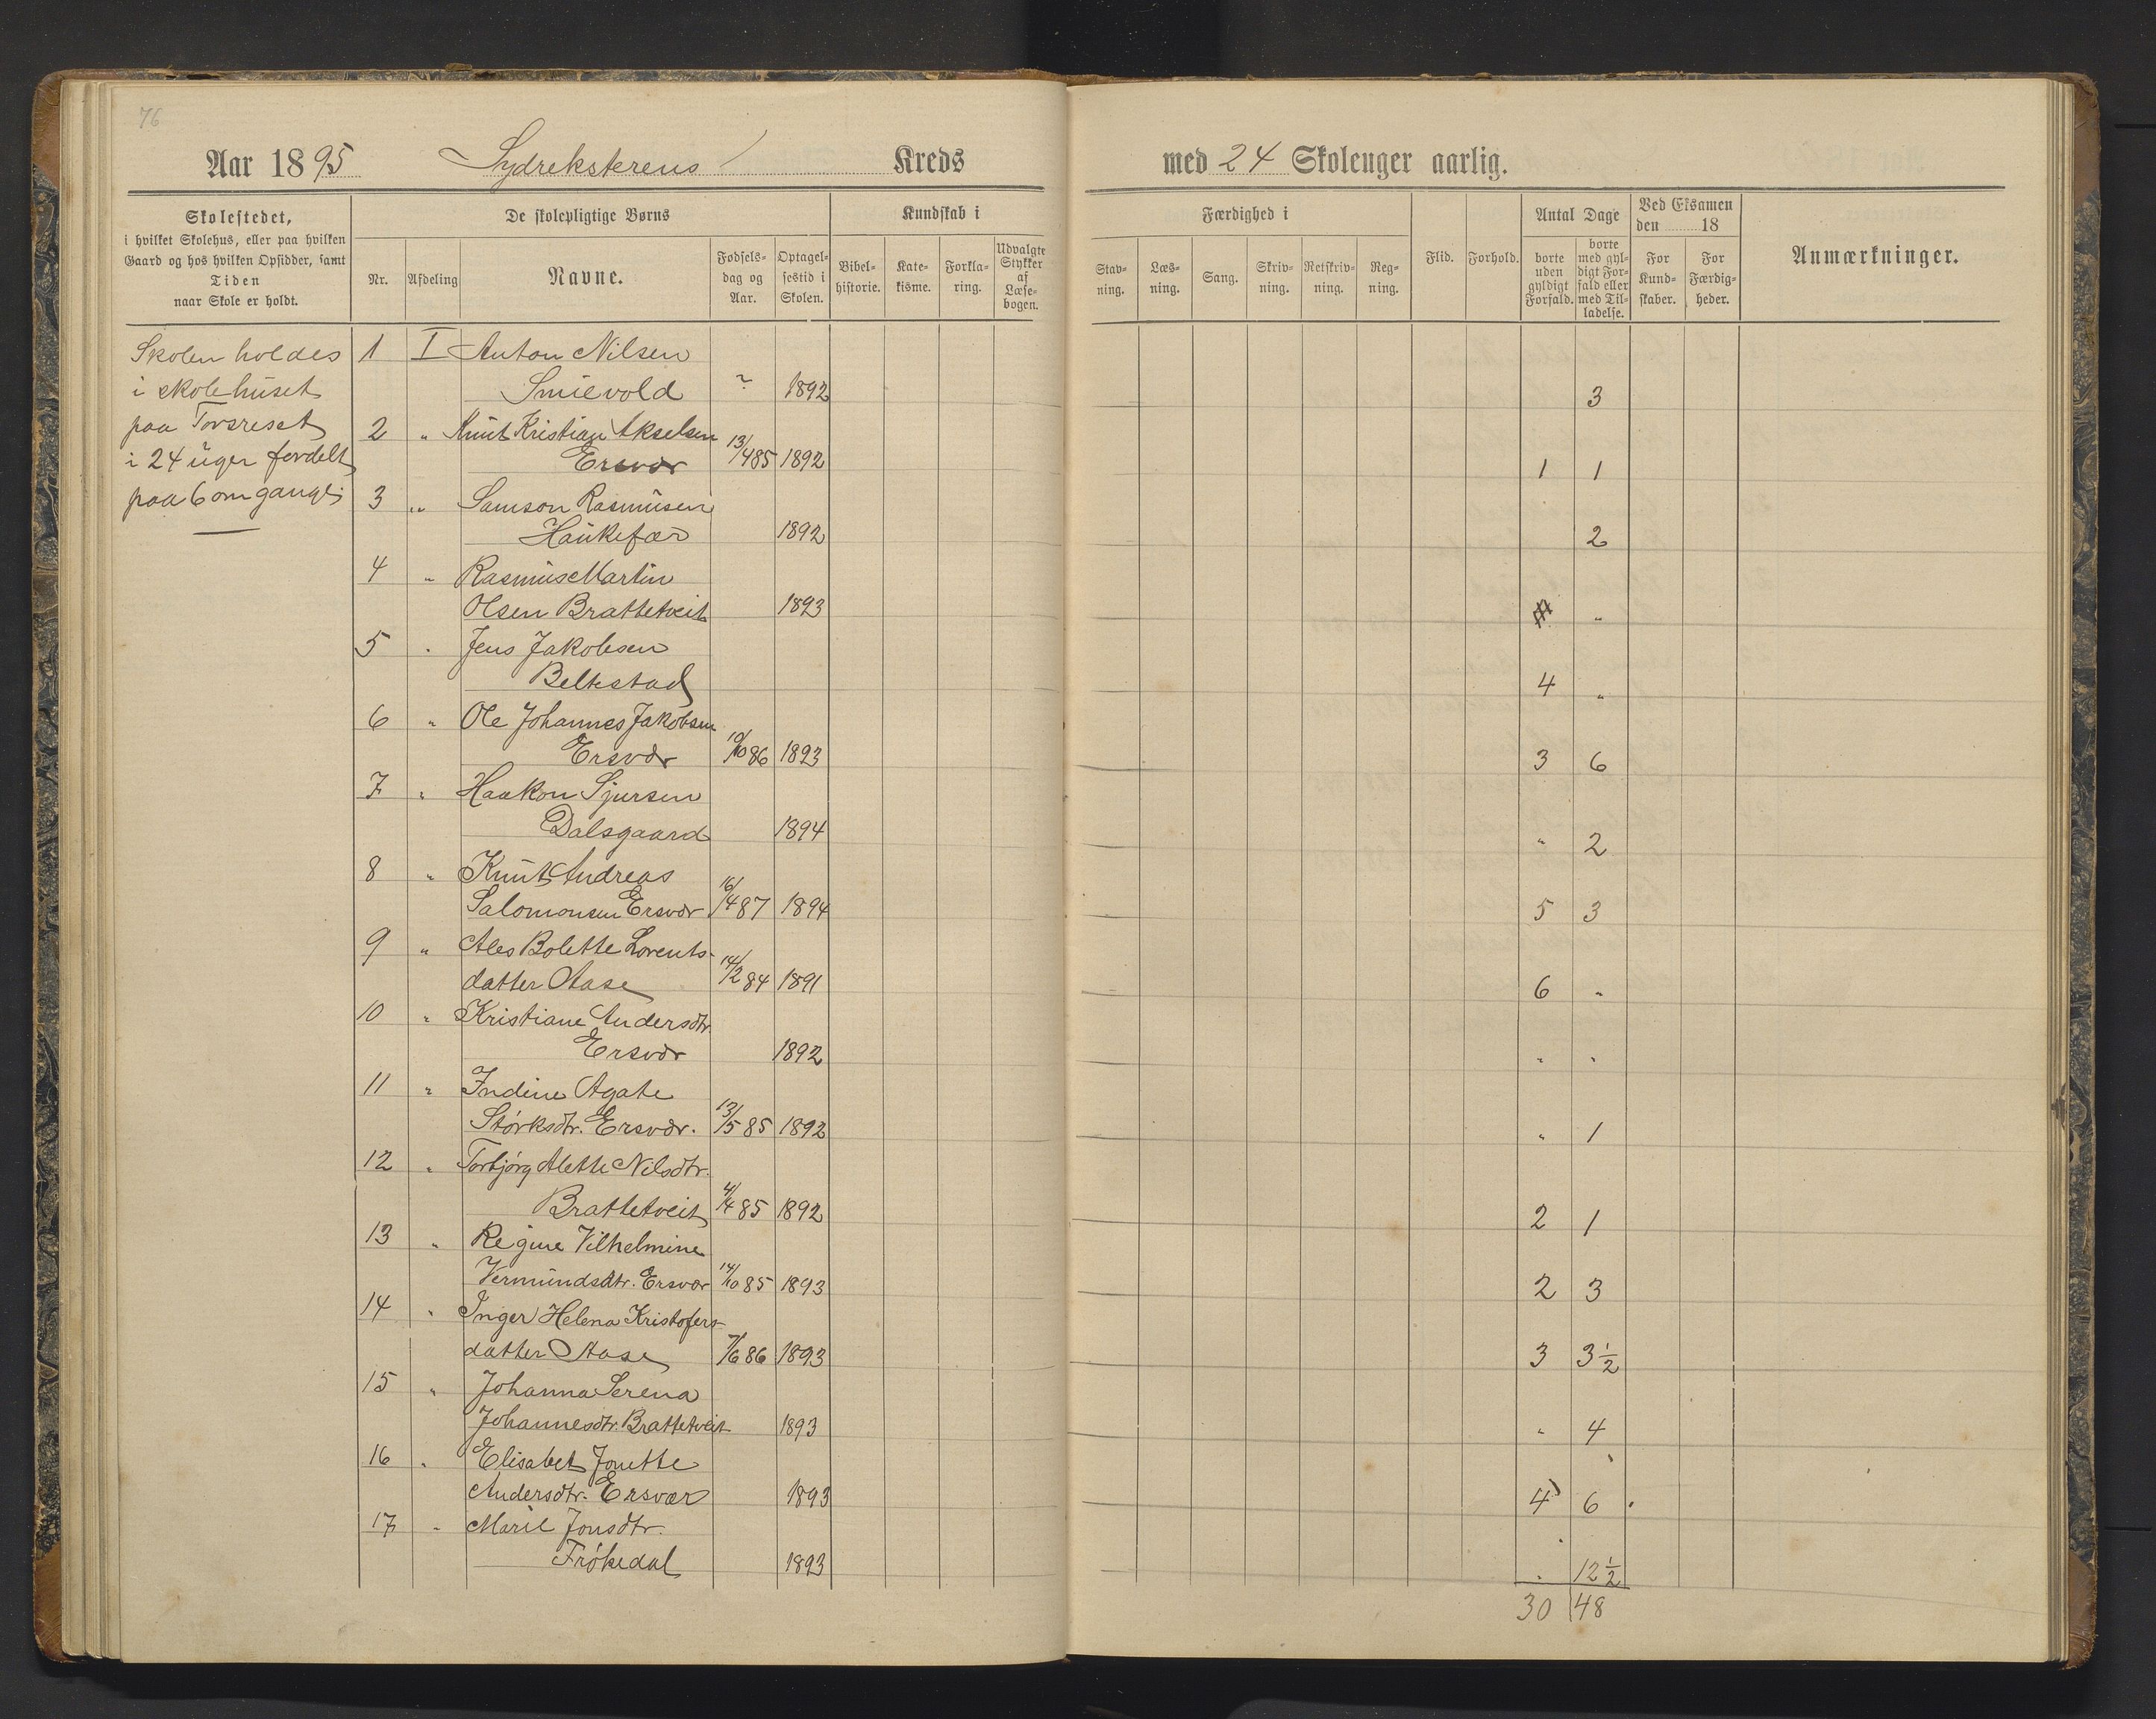 76
Aar 1895 Sydreksterens Kreds med 24 Skoleuger aarlig.
Skolestedet,
i hvilket Skolehus, eller paa hvilken
Gaard og hos hvilken Opsidder, samt
Tiden
naar Skole er holdt.
De skolepligtige Børns
Nr. Afdeling Navne. Fødsels-dag og Aar. Optagel-sestid i Skolen.
Kundskab i
Bibel-historie. Kate-kisme. Forkla-ring. Udvalgte Stykker af Læse-bogen.
Færdighed i
Stav-ning. Læs-ning. Sang. Skriv-ning. Retskriv-ning. Reg-ning.
Flid. Forhold.
Antal Dage
borte uden gyldigt Forfald. borte med gyl-digt For-fald eller med Til-ladelse.
Ved Eksamen
den 18
For Kund-skaber. For Færdig-heder.
Anmærkninger.
Skolen holdes
i skolehuset
paa
i 24 uger fordelt
paa 6 omgange
1 I Anton Nilsen
Smievold ? 1892 3
2 " Knut Kristian Akselsen
Ersvær 13/4 85 1892 1 1
3 " Samson Rasmusen
Haukefær 1892 2
4 " Rasmus Martin
Olsen Brattetveit 1893 "
5 " Jens Jakobsen
Beltestad 4 "
6 " Ole Johannes Jakobsen
Ersvær 10/10 86 1893 3 6
7 " Haakon Sjursen
Dalsgaard 1894 " 2
8 " Knut Andreas
Salomonsen Ersvær 16/4 87 1894 5 3
9 " Ales Bolette Lorents-
datter Aase 14/2 84 1891 6 "
10 " Kristiane Andersdtr.
Ersvær 1892 " "
11 " Indine Agate
Størksdtr. Ersvær. 13/5 85 1892 " 1
12 " Torbjørg Alette Nilsdtr.
Brattetveit 4/4 85 1892 2 1
13 " Regine Vilhelmine
Vermundsdtr. Ersvær 14/10 85 1893 2 3
14 " Inger Helena Kristofers-
datter Aase 7/6 86 1893 3 3 1/2
15 " Johanna Serena
Johannesdtr. Brattetveit 1893 " 4
16 " Elisabet Jonette
Andersdtr. Ersvær 1893 4 6
17 " Marie Jonsdtr.
Frøkedal 1893 " 12 1/2
30 48